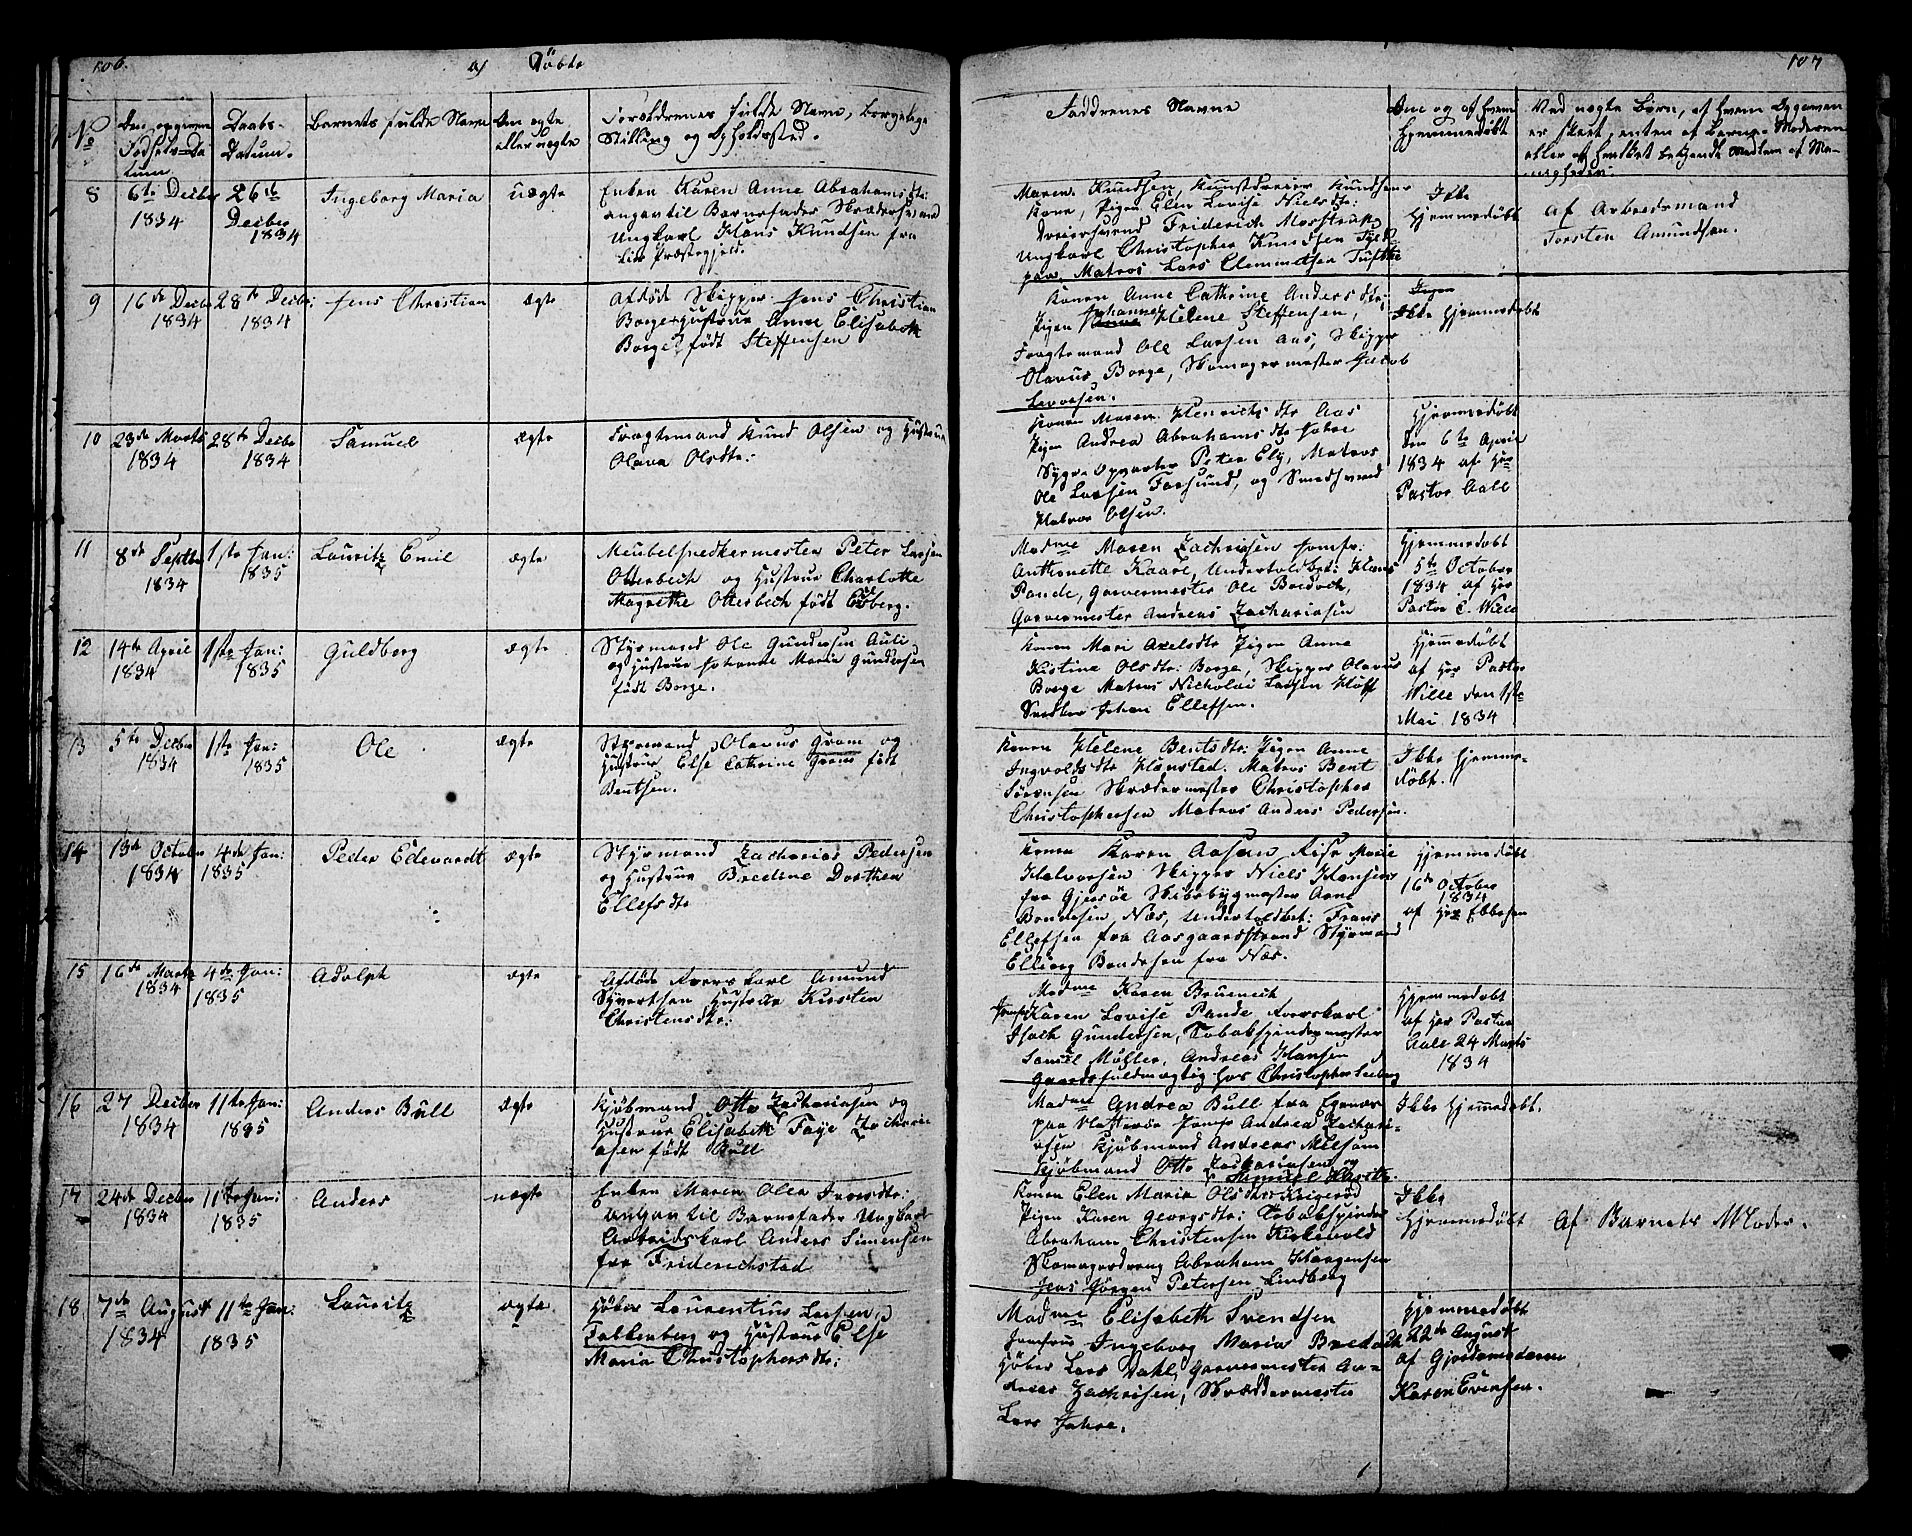 106.
a) Döbte
No
Den opgivne Födsels-Datum
Daabs-Datum.
Barnets fulde Navn
Om ægte eller uægte
Forældrenes fulde Navn, borgerlige Stilling og Opholdssted.
8
6te Decber 1834
26de Decber 1834
Ingeborg Maria
uægte
Enken Karen Anne Abrahamsdtr:
angav til Barnefader Skrædersvend
Ungkarl Hans Knudsen fra
Lier Præstegjeld.
9
16de Decbr 1834
28de Decbr: 1834
Jens Christian
Ægte
Afdöd Skipper Jens Christian
Borge Hustrue Anne Elisabeth
Borge född Steffensen
10
23de Marts 1834
28de Decbr 1834
Samuel
ægte
Fragtemand Knud Olsen og Hustrue
Olava Olsdtr:
11
8de Septbr 1834
1ste Jan: 1835
Lauritz Emil
ægte
Meubelsnedkermester Peter Larsen
Otterbech og Hustrue Charlotte
Magrethe Otterbech född Edsberg.
12
14de April 1834
1ste Jan: 1835
Guldborg
ægte
Styrmand Ole Gundersen Auli
og Hustrue Johanne Marie Gundersen
född Borge.
13
5te Decbr 1834
1ste Jan: 1835
Ole
ægte
Styrmand Olavus Gram og
Hustrue Else Cathrine Gram född
Bentsen.
14
13de October 1834
4de Jan: 1835
Peder Edevardt
ægte
Styrmand Zacharias Pedersen
og Hustrue Bredine Dorthea
Ellefsdtr
15
16de Marts 1834
4de Jan: 1835
Adolph
ægte
Afdöde Roerskarl Amund
Syvertsen Hustrue Kirsten
Christensdtr:
16
27 Decber 1834
11te Jan: 1835
Anders Bull
ægte
Kjöbmand Otto Zachariasen og
Hustrue Elisabeth Faye Zachari
asen född Bull
17
24de Decber 1834
11te Jan: 1835
Anders
uægte
Enken Maren Olea Iversdtr:
angav til Barnefader Ungkarl
Arbeidskarl Anders Simensen
fra Friderichstad
18
7de August 1834
11te Jan: 1835
Lauritz
ægte
Höker Laurentius Larsen
Falkenberg og Hustrue Else
Maria Christophersdtr:
107
Faddrenes Navne
Om og af hvem Hjemmedöbt
Ved uægte Börn, af hvem Opgaven
er skeet, enten af Barne-Moderen
eller af hendes bekjendte Medlem af Me-
nigheden.
Maren Knudsen, Kunstdreier Knudsens
Kone, Pigen Elen Lovise Nielsdtr:
Dreiersvend Friderich Mosstrup
Ungkarl Christopher Knudsen
paa Matros Lars Clemmetsen Tufthe
Ikke
Hjemmedöbt
Af Arbeidsmand
Torsten Amundsen.
Konen Anne Cathrine Andersdtr:
Pigen Johanne Helene Steffensen,
Fragtemand Ole Larsen Aas, Skipper
Olavus Borge, Skomagermester Jacob
Levorsen.
Ikke Hjemmedöbt
Konen Maren Henrichsdtr Aas
Pigen Andrea Abrahamsdtr Jahre
Syge Opvarter Peter Ely, Matros
Ole Larsen Farsund, og Smedsvend
Olsen.
Hjemmedöbt
den 6te April
1834 af Hr
Pastor Aall
Madme Maren Zachrisen Jomfr:
Anthonette Kaare, Undertoldbet: Hans
Pande, Garvermester Ole Bredoch,
Garvermester Andreas Zachariasen
Hjemmedöbt
5te October
1834 af Hr
Pastor C. Wille
Konen Mari Axelsdtr Pigen Anne
Kistine Olsdtr: Borge, Skipper Olavus
Borge Matros Nicholai Larsen Höft
Snedker Johan Ellefsen.
Hjemmedöbt
af Hr Pastor
Wille den 1ste
Mai 1834
Konen Helene Bentsdtr: Pigen Anne
Ingvoldsdtr Hansted. Matros Bent
Sörensen Skrædermester Christopher
Christophersen Matros Anders Pedersen.
Ikke Hjemme-
döbt.
Konen Karen Aasen Marie
Halvorsen Skipper Niels Hansen
fra Gjersöe Skibsbygmester Arne
Bendixsen, Næs, Undertoldbet: Frans
Ellefsen fra Aasgaardstrand Styrmand
Elling Bendixsen fra Næs.
Hjemmedöbt
16de October
1834
af Hr Ebbesen
Madme Karen Bruenech
Jomf: Karen Lovise Pande Roerskarl
Isach Gundersen, Tobakspindermester
Samuel Möller, Andreas Hansen
Gaardsfuldmægtig hos Christopher Seeberg
Hjemmedöbt
af Hr Pastor
Aall 24 Marts
1834
Madme Andrea Bull fra Egenæs
paa Nötteröe Jomfr Andrea Zachari-
asen Kjöbmand Andreas Melsom
Kjöbmand Otto Zachariasen og
Samuel
Ikke Hjemmedöbt.
Konen Elen Maria Olsdtr Krigeröd
Pigen Karen Georgsdtr: Tobakspinder
Abraham Christensen Kirkevold
Skomagerdreng Abraham Hargensen
Jens Jörgen Petersen Lindberg
Ikke
Hjemmedöbt
Af Barnets Moder.
Madme Elisabeth Svendsen
Jomfrue Ingeborg Maria Bredoch
Höker Lars Dahl, Garvermester An-
dreas Zachrisen, Skræddermester
Lars Jahre.
Hjemmedöbt
22de August
af Gjordemoderen
Karen Evensen.